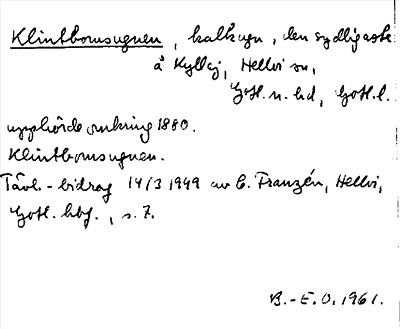 Klintbomsugnen, kalkugn, den sydligaste
å Kyllej, Hellvi sn,
Gotl. n. hd, Gotl. l.
upphörde omkring 1880.
Klintbomsugnen.
Tävl.-bidrag 14/3 1949 av C. Franzén, Hellvi,
Gotl. hbf., s. 7.
B.-E. O. 1961.